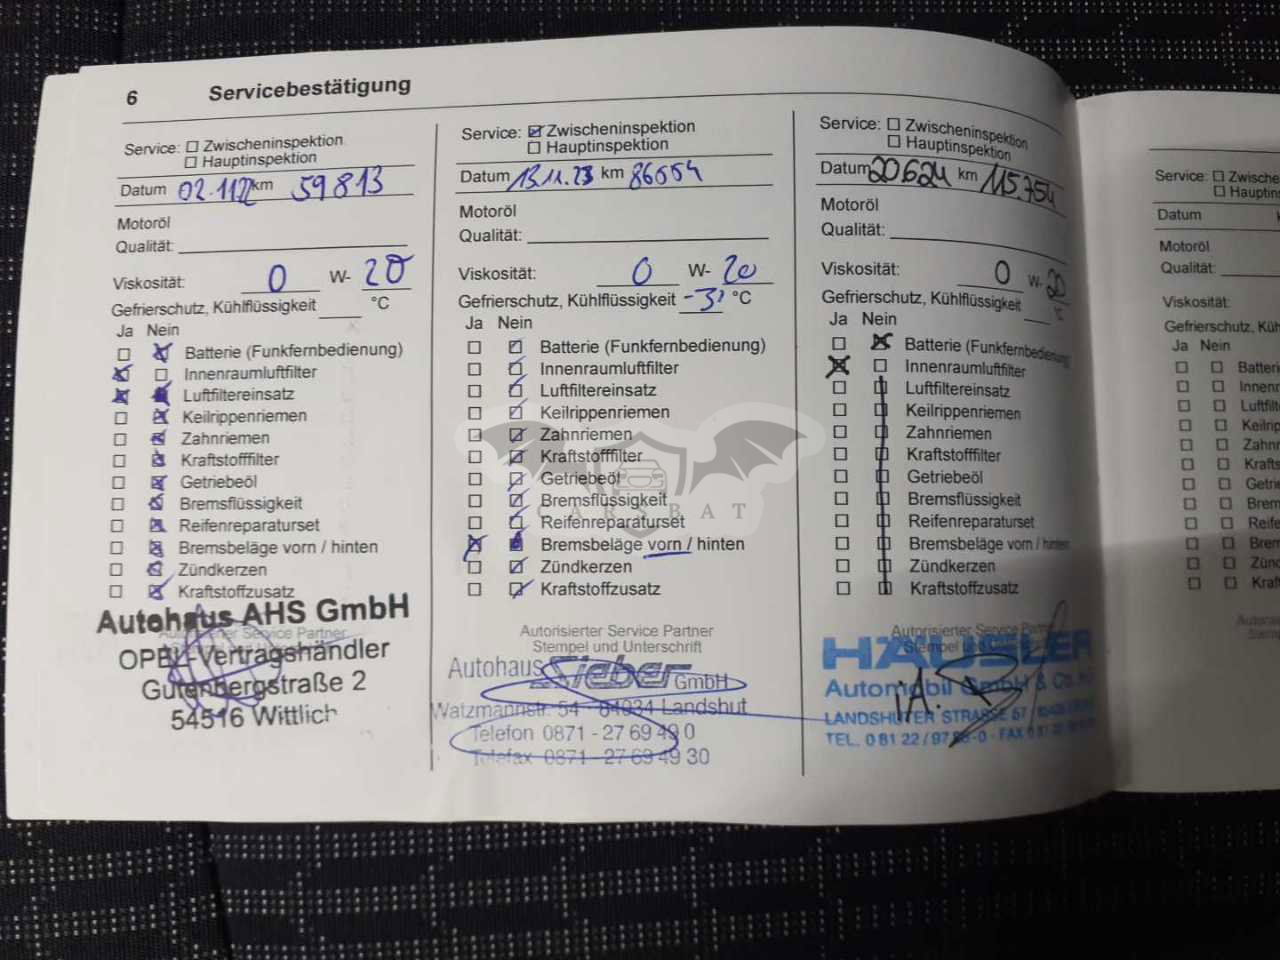 6 Servicebestätigung
Service: Zwischeninspektion
Hauptinspektion
Datum 02.1122 km 59813
Motoröl
Qualität:
Viskosität: 0 W- 20
Gefrierschutz, Kühlflüssigkeit °C
Ja Nein
Batterie (Funkfernbedienung)
Innenraumluftfilter
Luftfiltereinsatz
Keilrippenriemen
Zahnriemen
Kraftstofffilter
Getriebeöl
Bremsflüssigkeit
Reifenreparaturset
Bremsbeläge vorn / hinten
Zündkerzen
Kraftstoffzusatz
Autohaus AHS GmbH
Autorisierter Service Partner
OPEL-Vertragshändler
Gutenbergstraße 2
54516 Wittlich
Service: Zwischeninspektion
Hauptinspektion
Datum 13.11.23 km 86554
Motoröl
Qualität:
Viskosität: 0 W- 20
Gefrierschutz, Kühlflüssigkeit °C
Ja Nein
Batterie (Funkfernbedienung)
Innenraumluftfilter
Luftfiltereinsatz
Keilrippenriemen
Zahnriemen
Kraftstofffilter
Getriebeöl
Bremsflüssigkeit
Reifenreparaturset
Bremsbeläge vorn / hinten
Zündkerzen
Kraftstoffzusatz
CARSBAT
Autorisierter Service Partner
Stempel und Unterschrift
Autohaus Sieber GmbH
Watzmannstr. 54 - 84034 Landshut
Telefon 0871 - 27 69 49 0
Telefax 0871 - 27 69 49 30
Service: Zwischeninspektion
Hauptinspektion
Datum 20624 km 115.754
Motoröl
Qualität:
Viskosität: 0 W- 20
Gefrierschutz, Kühlflüssigkeit °C
Ja Nein
Batterie (Funkfernbedienung)
Innenraumluftfilter
Luftfiltereinsatz
Keilrippenriemen
Zahnriemen
Kraftstofffilter
Getriebeöl
Bremsflüssigkeit
Reifenreparaturset
Bremsbeläge vorn / hinten
Zündkerzen
Kraftstoffzusatz
Autorisierter Service
HÄUSLER
Automobil GmbH & Co.
LANDSHUTER STRASSE
TEL. 0 81 22 /
Service: Zwische
Hauptin
Datum
Motoröl
Qualität:
Viskosität:
Gefrierschutz, Küh
Ja Nein
Batter
Innen
Luftfil
Keilrip
Zahnr
Krafts
Getri
Brem
Reife
Brem
Zünd
Kraf